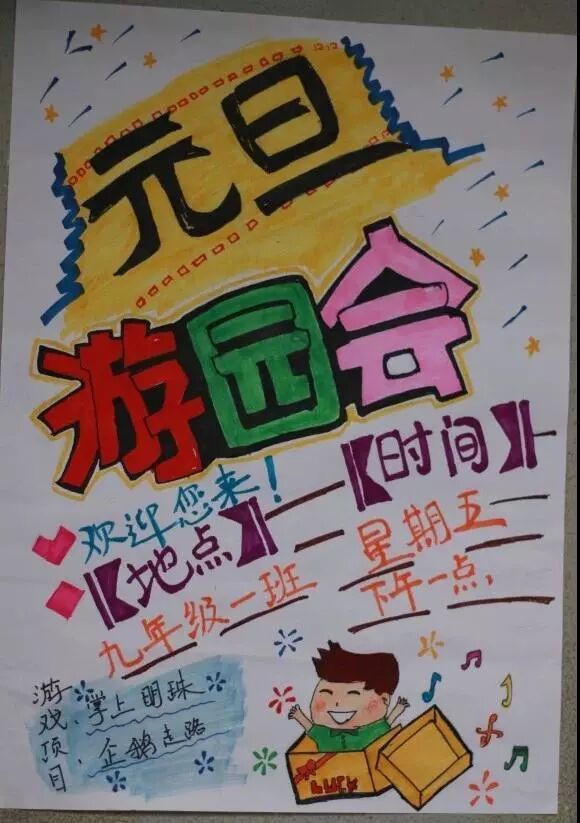 元旦
游园会
欢迎您来！
【时间】
星期五
下午一点
【地点】
九年级一班
游戏项目：
掌上明珠
企鹅走路
LUCK